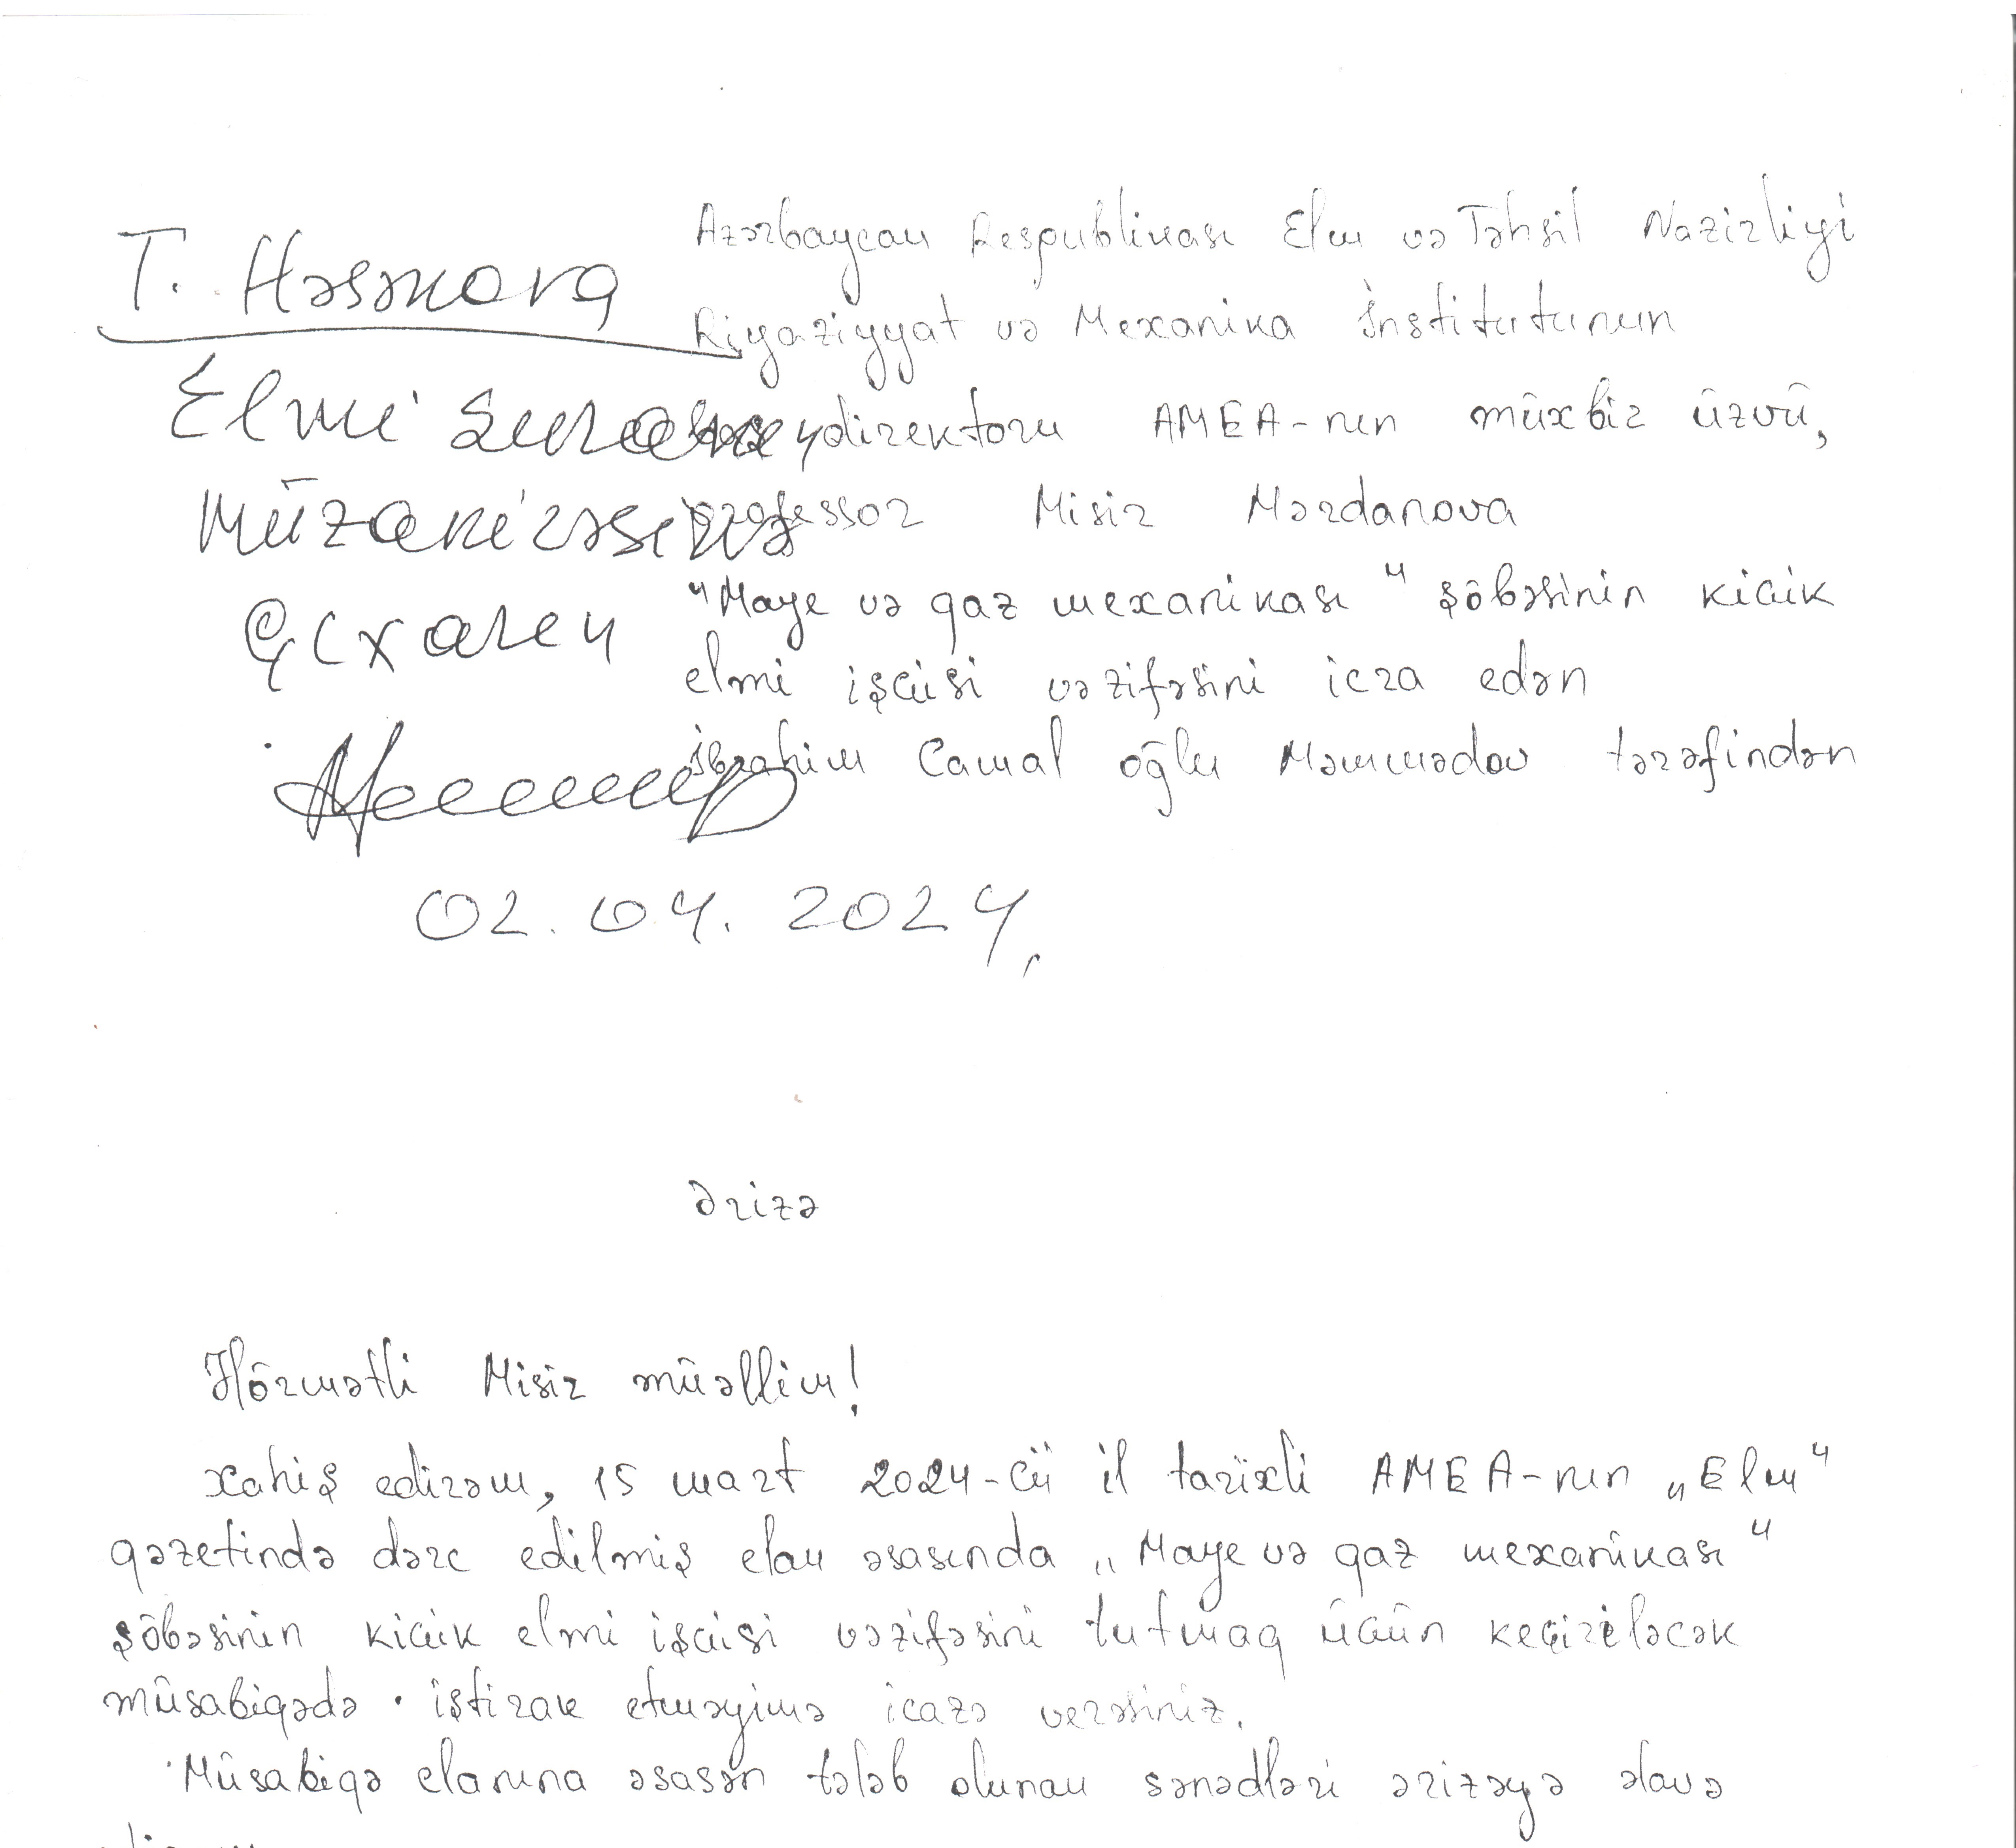 T. Həsənova
Elmi şuranın
müzakirəsinə
çıxarın
02.04.2024.
Azərbaycan Respublikası Elm və Təhsil Nazirliyi
Riyaziyyat və Mexanika İnstitutunun
direktoru AMEA-nın müxbir üzvü,
professor Misir Mərdanova
"Maye və qaz mexanikası" şöbəsinin kiçik
elmi işçisi vəzifəsini icra edən
İbrahim Camal oğlu Məmmədov tərəfindən
Ərizə
Hörmətli Misir müəllim!
Xahiş edirəm, 15 mart 2024-cü il tarixli AMEA-nın „Elm"
qəzetində dərc edilmiş elan əsasında „Maye və qaz mexanikası"
şöbəsinin kiçik elmi işçisi vəzifəsini tutmaq üçün keçiriləcək
müsabiqədə iştirak etməyimə icazə verəsiniz.
Müsabiqə elanına əsasən tələb olunan sənədləri ərizəyə əlavə